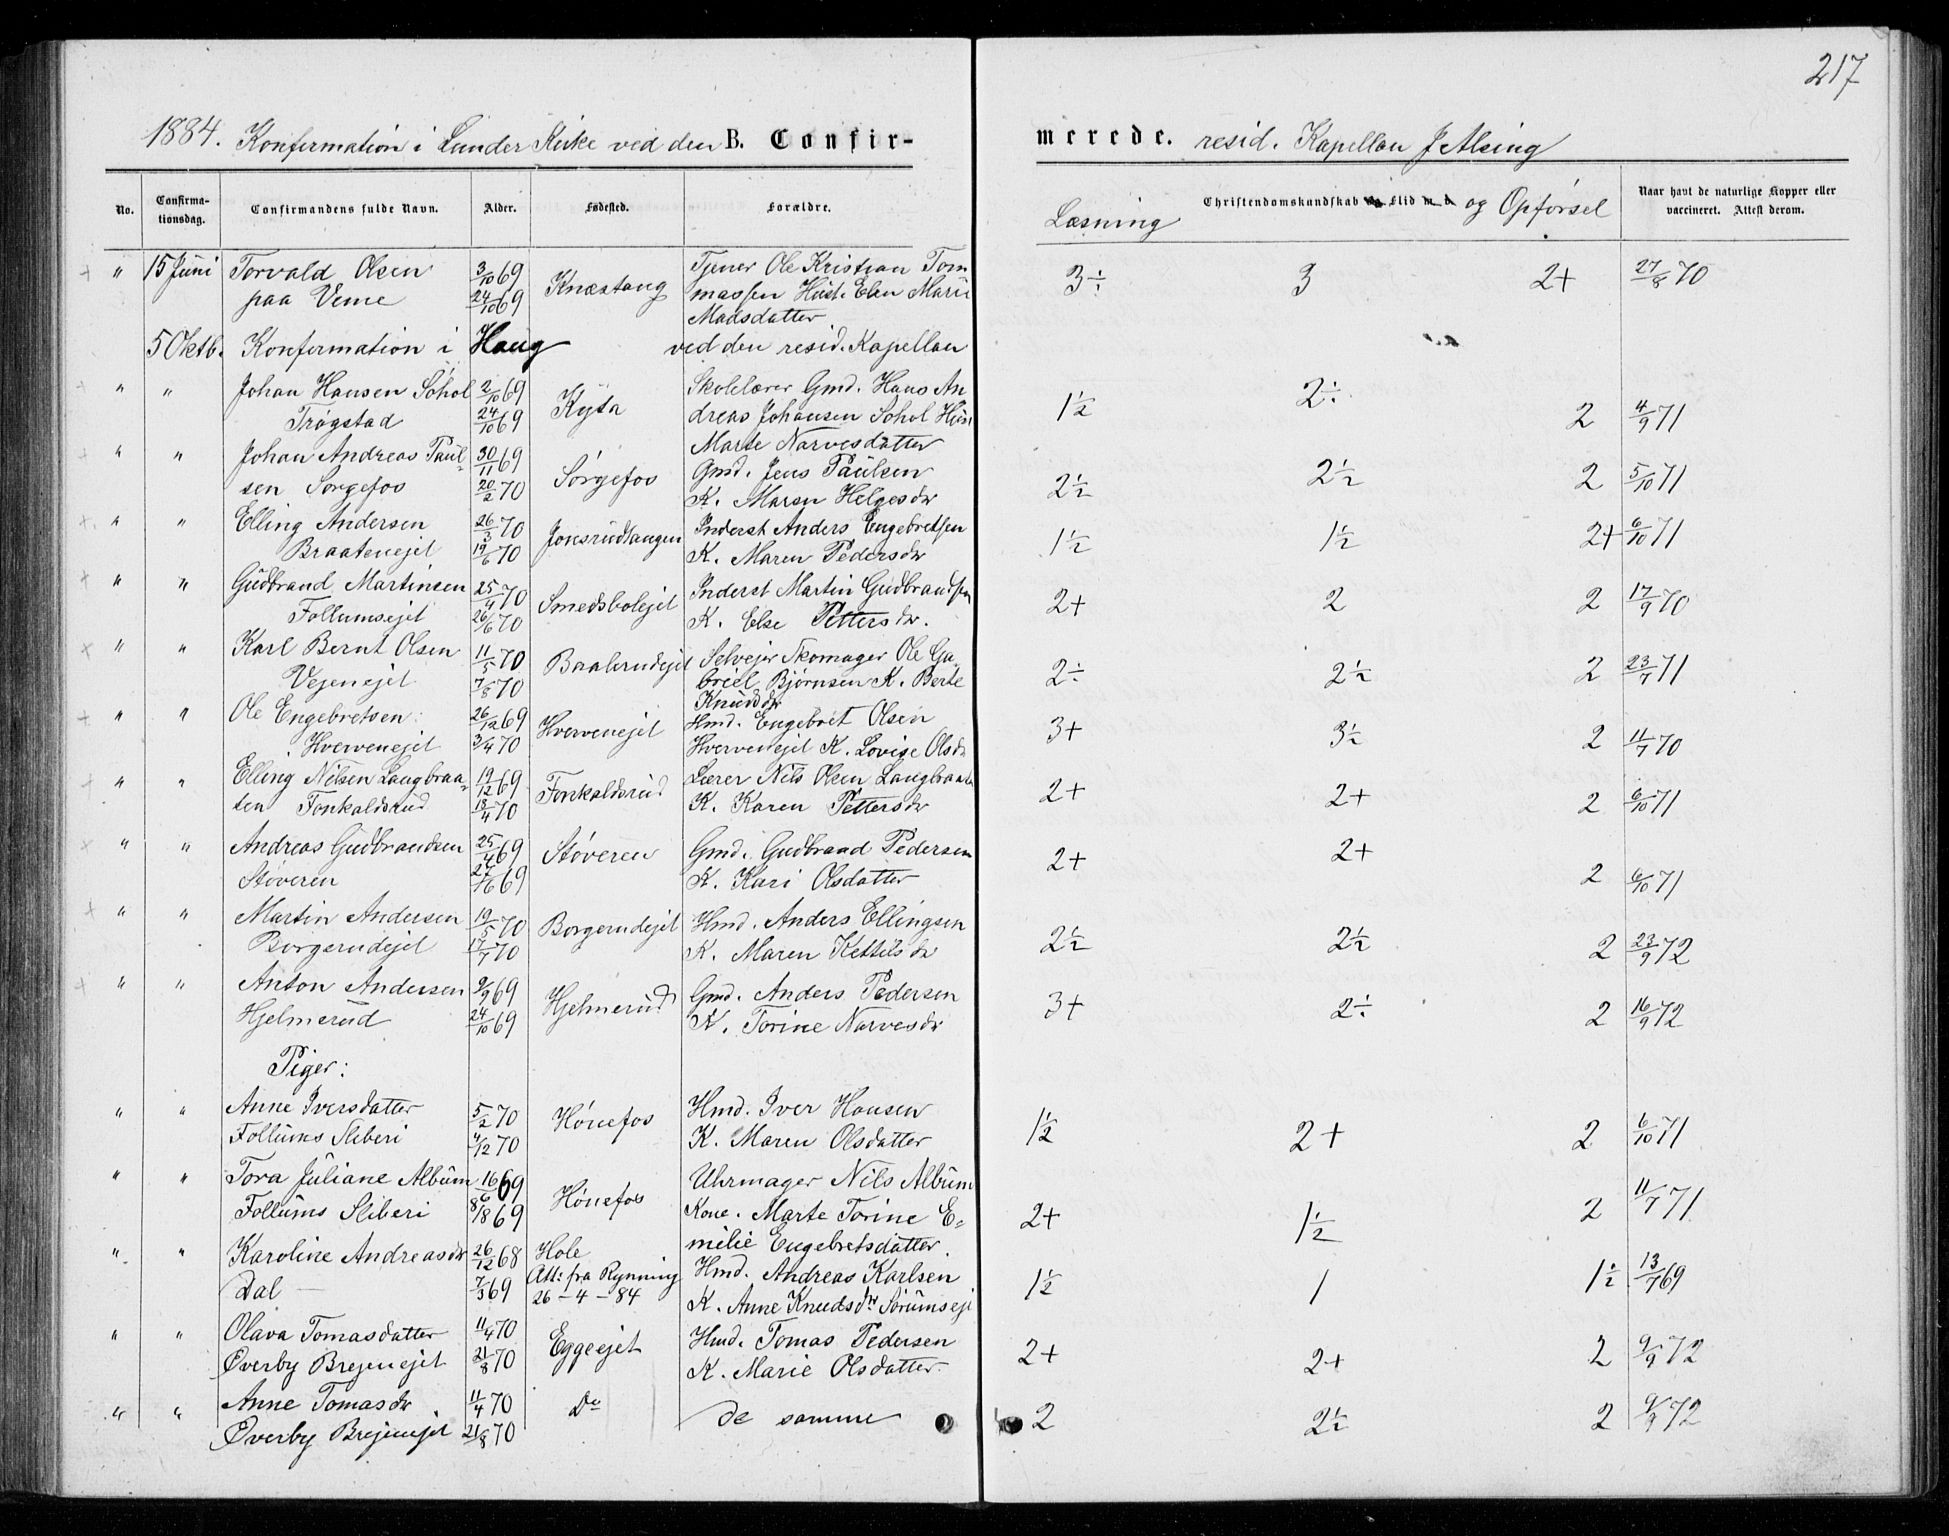 217
1884. Konfirmation i Lunder Kirke ved den B. Confirmerede. resid. Kapellan J Alsing
No. Confirmationsdag. Confirmandens fulde Navn. Alder. Fødested. Forældre. Læsning Christendomskundskab og Flid m. v. og Opførsel Naar havt de naturlige Kopper eller vaccineret. Attest derom.
" 15 Juni Torvald Olsen 3/10 69 Knæstang Tjener Ole Kristian Tom 3÷ 3 2+ 27/8 70
paa Veme 24/10 69 massen Hust. Elen Marie
Madsdatter
5 Oktb. Konfirmation i Haug ved den resid. Kapellan
" " Johan Hansen Sóhol 2/10 69 Kyta Skolelærer Gmd. Hans An 1½ 2÷ 2 4/9 71
Trøgstad 24/10 69 dreas Johansen Sohol Hus
Marte Narvesdatter
" " Johan Andreas Paul- 30/11 69 Sórgefos Gmd. Jens Paulsen 2½ 2½ 2 5/10 71
sen Sorgefos 20/2 70 K. Maren Helgesdr
" " Elling Andersen 26/3 70 Jonsrudtangen Inderst Anders Engebretsen 1½ 1½ 2+ 6/10 71
Braatenejet 19/6 70 K. Maren Pedersdr
" " Gudbrand Martinsen 25/4 70 Smedsbolejet Inderst Martin Gudbrandsen 2+ 2 2 17/9 70
Follumsejet 26/6 70 K. Else Pettersdr.
" " Karl Bernt Olsen 11/5 70 Baalerudejet Selvejer Skomager Ole Ga- 2÷ 2½ 2 23/7 71
Vejenejet 7/8 70 briel Bjørnsen K. Berte
Knudsdr
" " Ole Engebretsen 26/12 69 Hvervenejet Hmd. Engebret Olsen 3+ 3½ 2 11/7 70
Hvervenejet 3/4 70 Hvervenejet K. Lovise Olsdr
" " Elling Nilsen Langbraa- 19/12 69 Fonkaldsrud Lærer Nils Olsen Langbraaten 2+ 2+ 2 6/10 71
ten Fonkaldsrud 13/4 70 K. Karen Pettersdr
" " Andreas Gudbrandsen 25/4 69 Støveren Gmd. Gudbrand Pedersen 2+ 2+ 2 6/10 71
Støveren 27/6 69 K. Kari Olsdatter
" " Martin Andersen 19/5 70 Borgerudejet Hmd. Anders Ellingsen 2½ 2½ 2 23/9 72
Borgerudejet 17/7 70 K. Maren Kettilsdr
" " Anton Andersen 9/9 69 Hjelmerud Gmd. Anders Pedersen 3+ 2÷ 2 16/9 72
Hjelmerud 24/10 69 K. Torine Narvesdr
Piger:
" " Anne Iversdatter 5/2 70 Hónefos Hmd. Iver Hansen 1½ 2+ 2 6/10 71
Follums Sliberi 4/12 70 K. Maren Olsdatter
" " Tora Juliane Album 16/6 69 Hónefos Uhrmager Nils Album 2+ 1½ 2 11/7 71
Follums Sliberi 8/8 69 Kone. Marte Torine E-
milie Engebretsdatter.
" " Karoline Andreasdr 26/12 68 Hole Hmd. Andreas Karlsen 1½ 1 1½ 13/7 69
Dal 7/3 69 Att: fra Rynning K. Anne Knudsdr Sørumsejet
26 - 4 - 84
" " Olava Tomasdatter 11/4 70 Eggeejet Hmd. Tomas Pedersen 2+ 2+ 2 9/9 72
Øverby Brejenejet 21/8 70 K. Marie Olsdatter.
" " Anne Tomasdr 11/4 70 Do de samme 2 2½ 2 9/9 72
Øverby Brejenejet 21/8 70